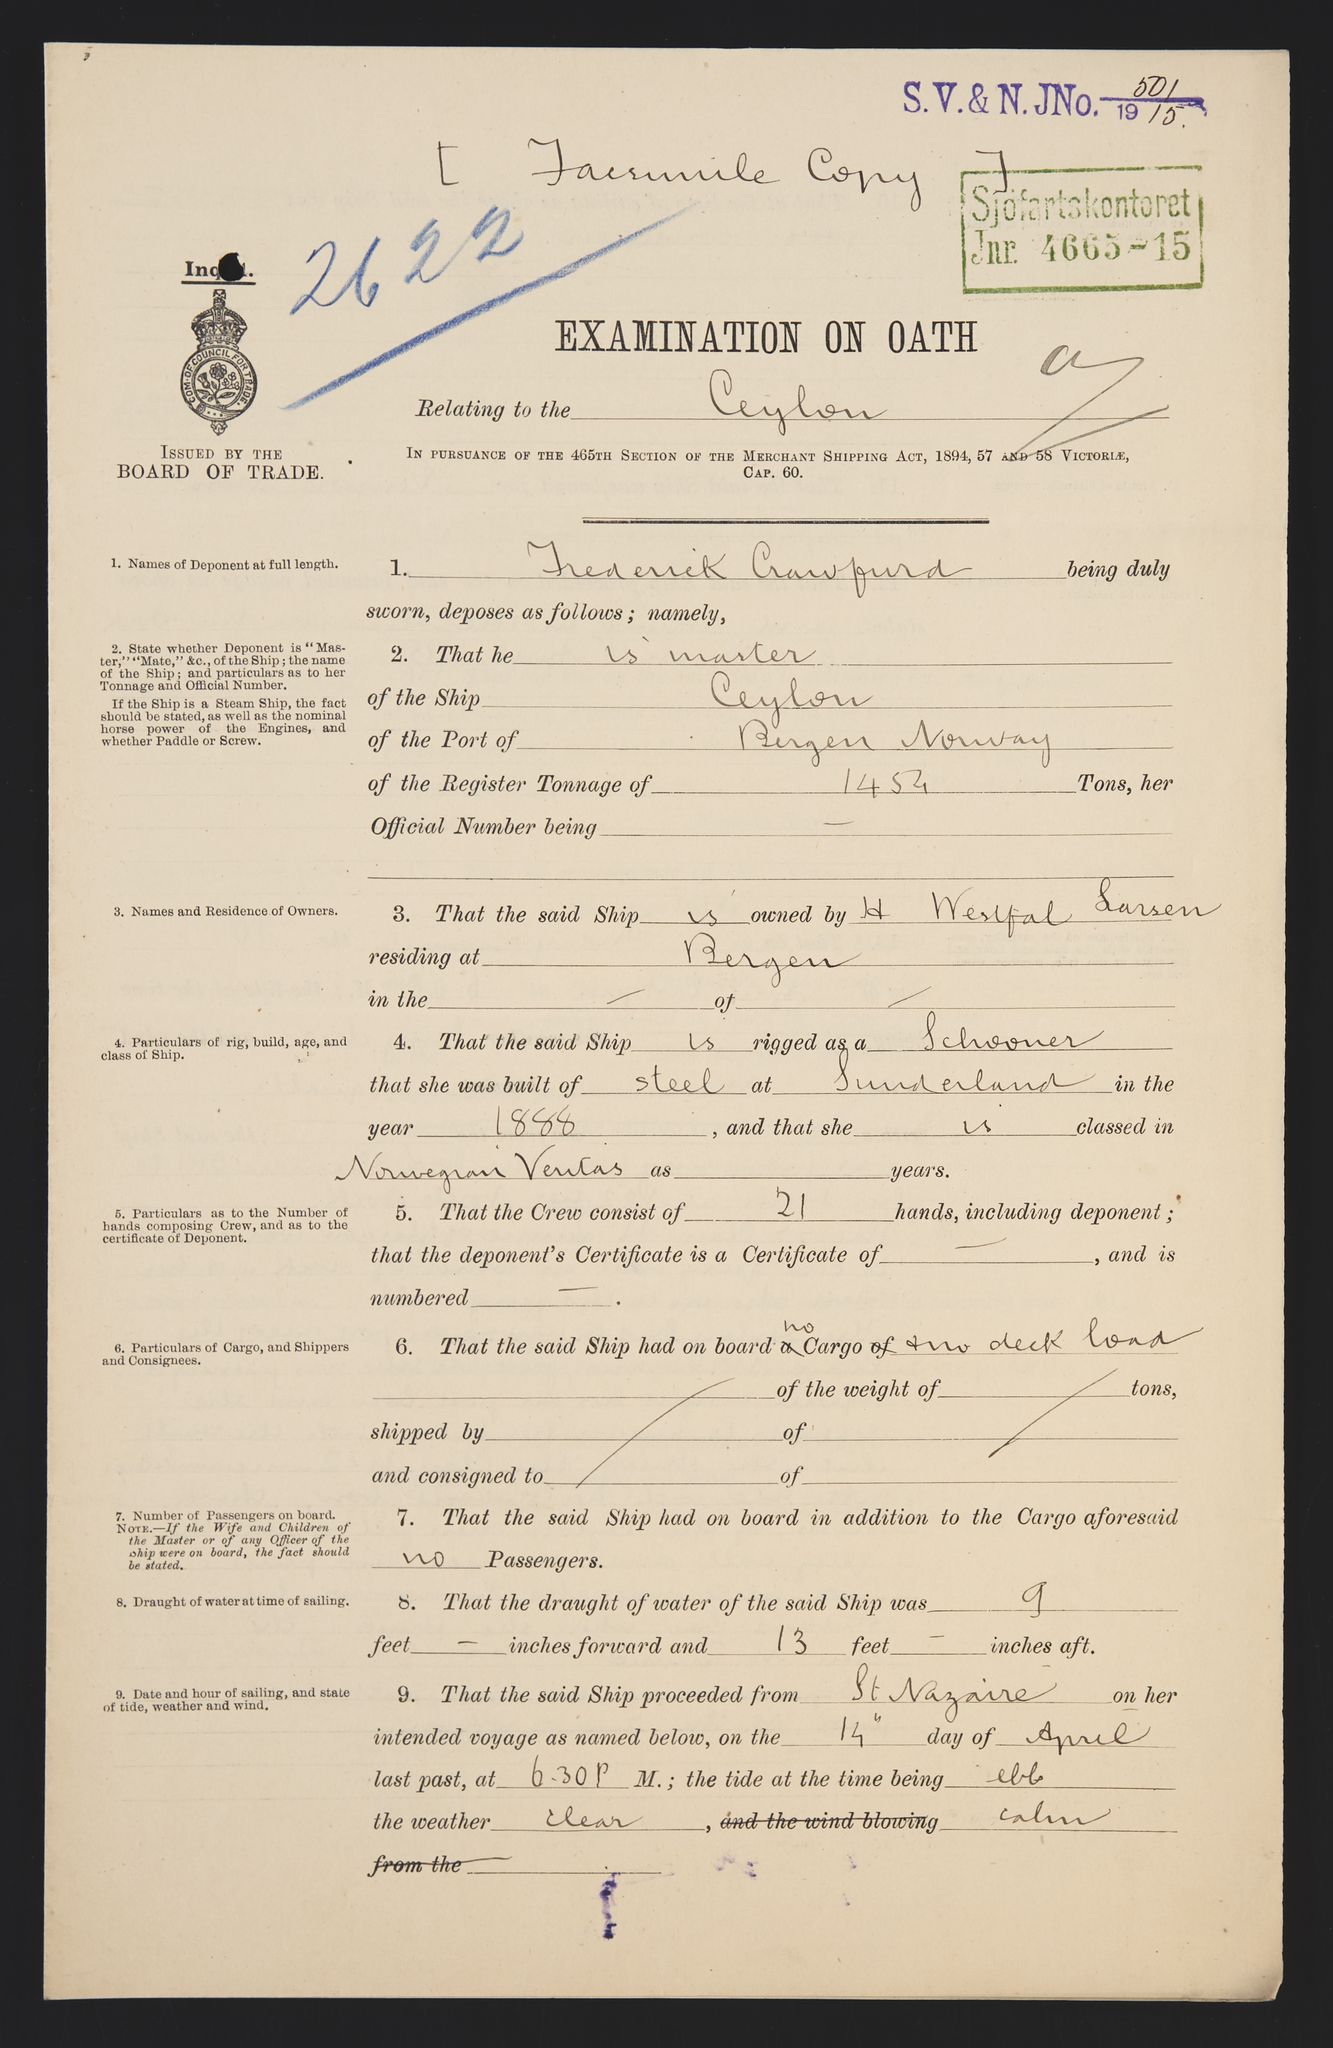 S. V. & N. JNo. 501
1915.
[ Facsimile Copy ]
Sjöfartskontoret
Jnr. 4665-15
2622
EXAMINATION ON OATH
a
Relating to the Ceylon
COM. OF COUNCIL FOR TRADE.
ISSUED BY THE
BOARD OF TRADE.
IN PURSUANCE OF THE 465TH SECTION OF THE MERCHANT SHIPPING ACT, 1894, 57 AND 58 VICTORIÆ,
CAP. 60.
1. Names of Deponent at full length.
1. Frederick Crawfurd being duly
sworn, deposes as follows; namely,
2. State whether Deponent is "Mas-
ter," "Mate," &c., of the Ship; the name
of the Ship; and particulars as to her
Tonnage and Official Number.
If the Ship is a Steam Ship, the fact
should be stated, as well as the nominal
horse power of the Engines, and
whether Paddle or Screw.
2. That he is master
of the Ship Ceylon
of the Port of Bergen Norway
of the Register Tonnage of 1454 Tons, her
Official Number being —
3. Names and Residence of Owners.
3. That the said Ship is owned by H Westfal Larsen
residing at Bergen
in the — of —
4. Particulars of rig, build, age, and
class of Ship.
4. That the said Ship is rigged as a Schooner
that she was built of steel at Sunderland in the
year 1888, and that she is classed in
Norwegian Veritas as years.
5. Particulars as to the Number of
hands composing Crew, and as to the
certificate of Deponent.
5. That the Crew consist of 21 hands, including deponent;
that the deponent's Certificate is a Certificate of —, and is
numbered —.
6. Particulars of Cargo, and Shippers
and Consignees.
6. That the said Ship had on board a no Cargo of & no deck load
of the weight of tons,
shipped by of
and consigned to of
7. Number of Passengers on board.
NOTE.—If the Wife and Children of
the Master or of any Officer of the
ship were on board, the fact should
be stated.
7. That the said Ship had on board in addition to the Cargo aforesaid
no Passengers.
8. Draught of water at time of sailing.
8. That the draught of water of the said Ship was 9
feet — inches forward and 13 feet — inches aft.
9. Date and hour of sailing, and state
of tide, weather and wind.
9. That the said Ship proceeded from St Nazaire on her
intended voyage as named below, on the 14" day of April
last past, at 6.30 P M.; the tide at the time being ebb
the weather clear, and the wind blowing calm
from the —